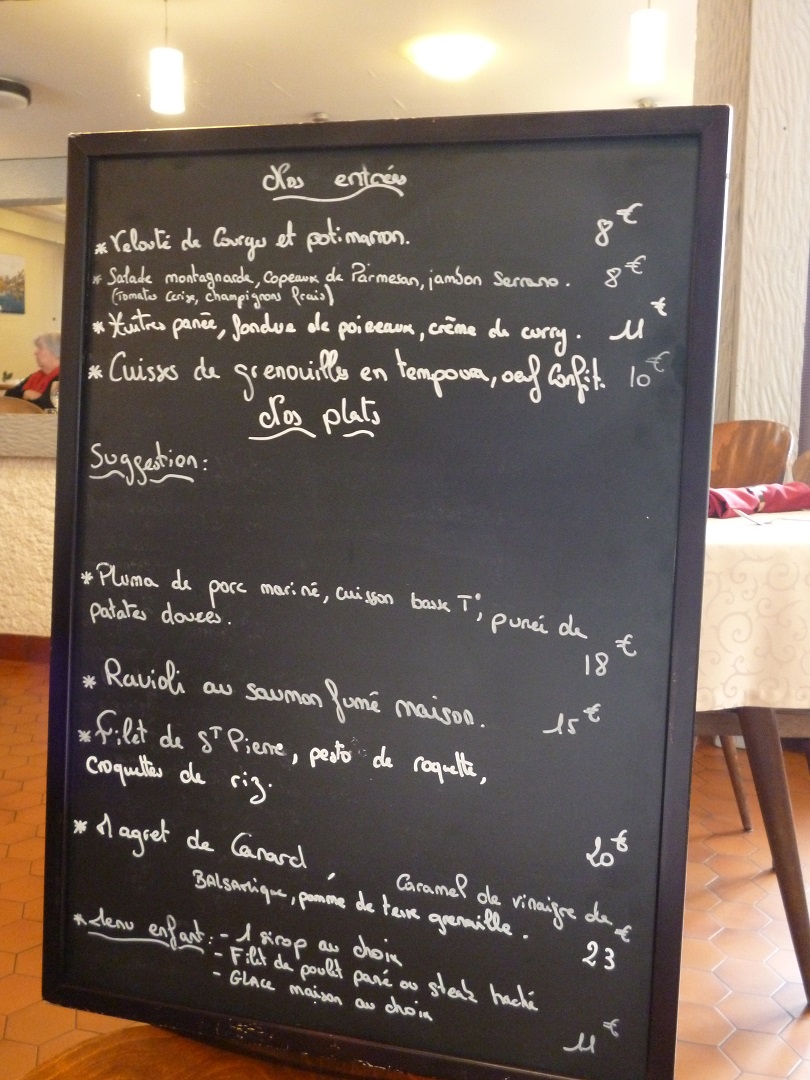 Nos entrées
* Velouté de Courges et potimarron. 8€
* Salade montagnarde, Copeaux de Parmesan, jambon Serrano. 8€
(Tomates Cerise, champignons frais)
* Huîtres panée, fondue de poireaux, crème de curry. 11€
* Cuisses de grenouilles en tempoura, oeuf Confit. 10€
Nos plats
Suggestion:
* Pluma de porc mariné, cuisson basse T°, purée de
patates douces. 18€
* Ravioli au saumon fumé maison. 15€
* Filet de St Pierre, pesto de roquette,
Croquettes de riz. 20€
* Magret de Canard, Caramel de vinaigre de
BALSAmique, pomme de terre grenaille. 23€
* Menu enfant: - 1 sirop au choix
- Filet de poulet pané ou steak haché
- GLACE maison au choix 11€